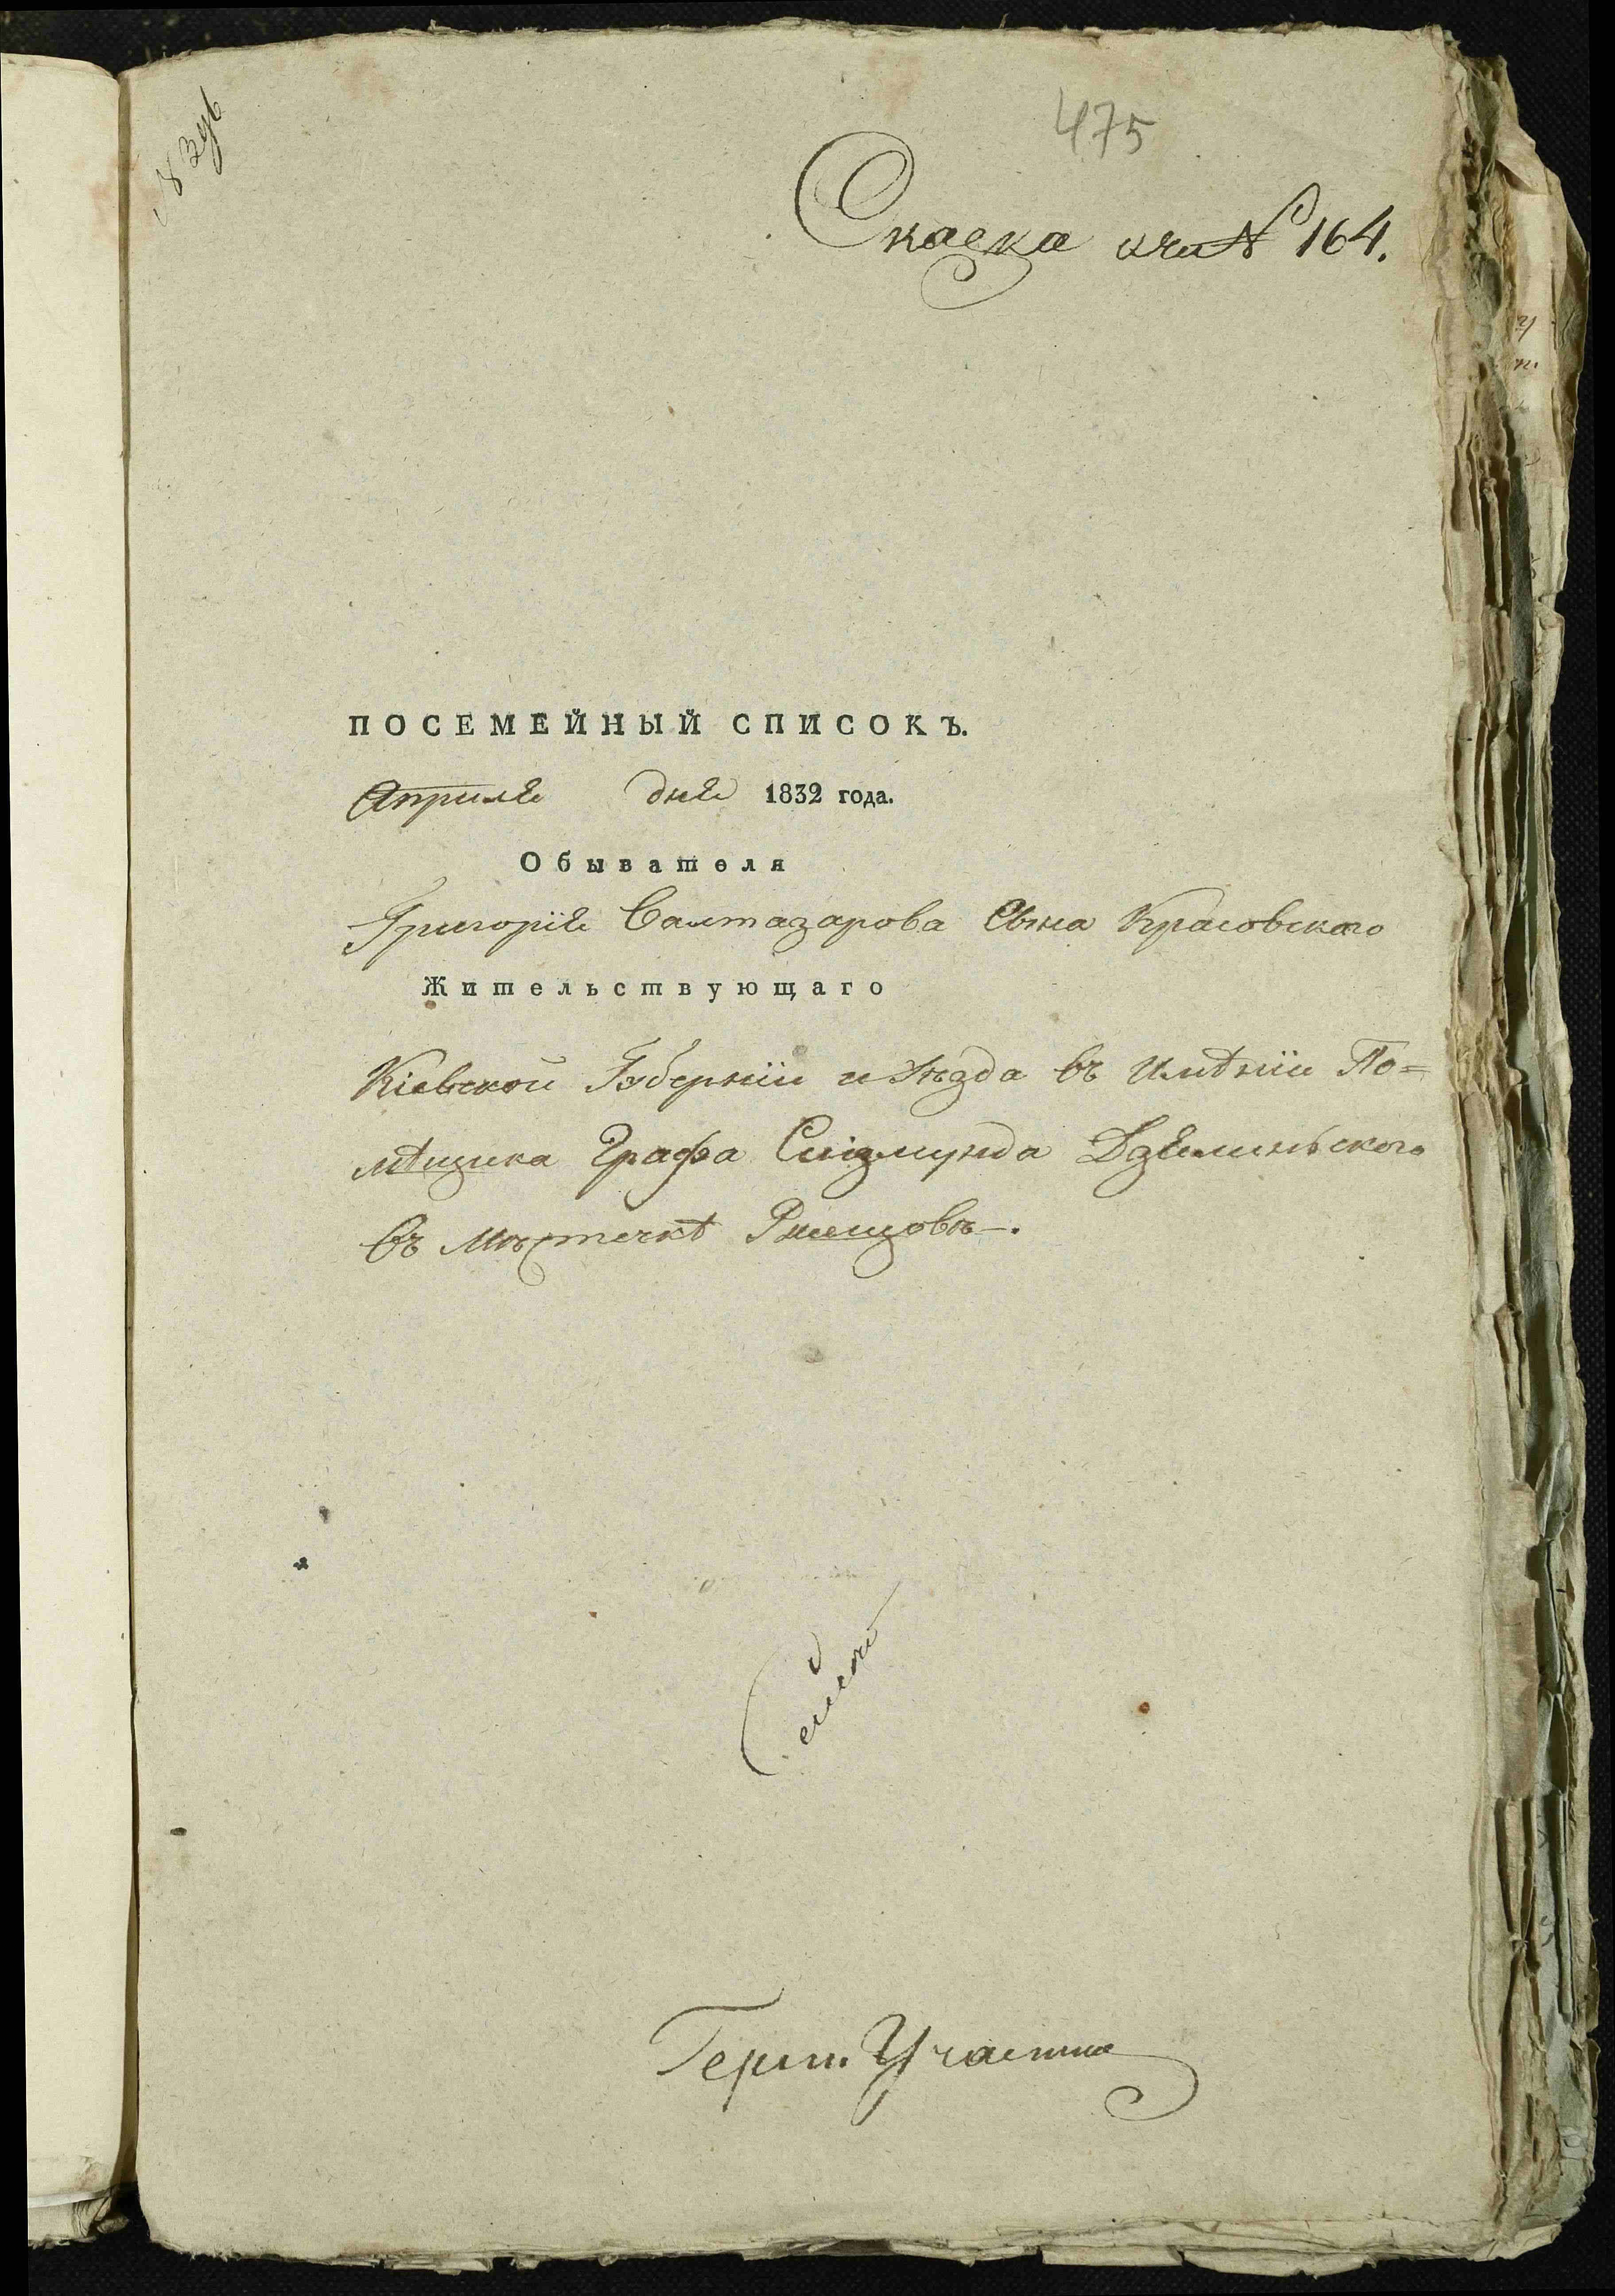 475
Скаска №164.
ПОСЕМЕЙНЫЙ СПИСОКЪ.
Апреля дня 1832 года.
Обывателя
Григорія Балтазарова Сына Красовского
Жительствующаго
Кіевской Губерніи и Уѣзда въ Имѣніи По=
мѣщика Графа Сигизмунда Дзялиньского
въ Мѣстечкѣ Ржищовѣ.
Герм. Участка